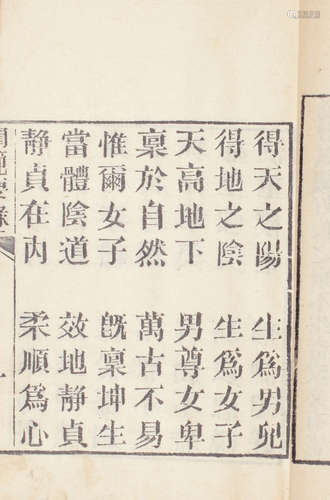 得天之陽 生為男兒
得地之陰 生為女子
天高地下 男尊女卑
稟於自然 萬古不易
惟爾女子 旣稟坤生
當體陰道 效地静貞
静貞在内 柔順為心